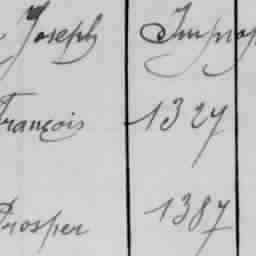 Joseph Improp
François 1327
Prosper 1387